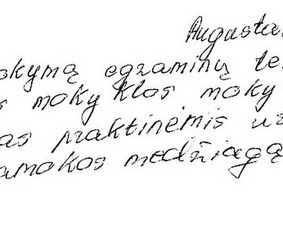 Augusta
okymą egzaminų te
s mokyklos moky
as praktinėmis už
amokos medžiagą